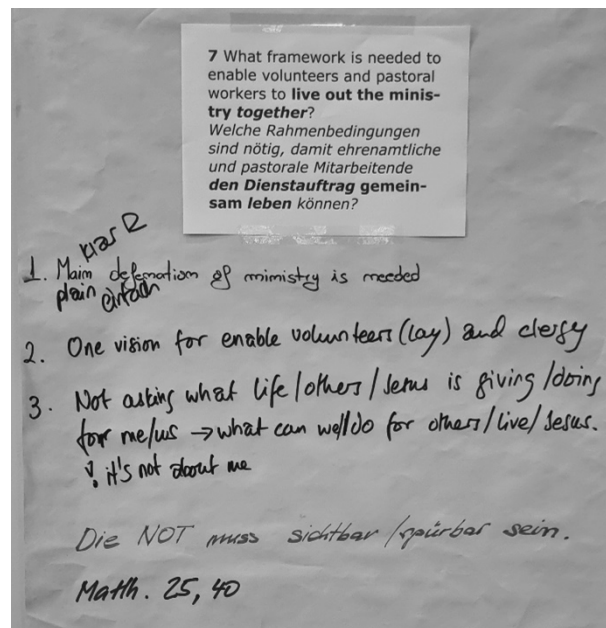 7 What framework is needed to
enable volunteers and pastoral
workers to live out the minis-
try together?
Welche Rahmenbedingungen
sind nötig, damit ehrenamtliche
und pastorale Mitarbeitende
den Dienstauftrag gemein-
sam leben können?
klar
1. Main defenation of ministry is needed
plain einfach
2. One vision for enable volunteers (lay) and clergy
3. Not asking what life/others/Jesus is giving/doing
for me/us → what can we/I do for others/live/Jesus.
! it's not about me
Die NOT muss sichtbar/spürbar sein.
Matth. 25, 40